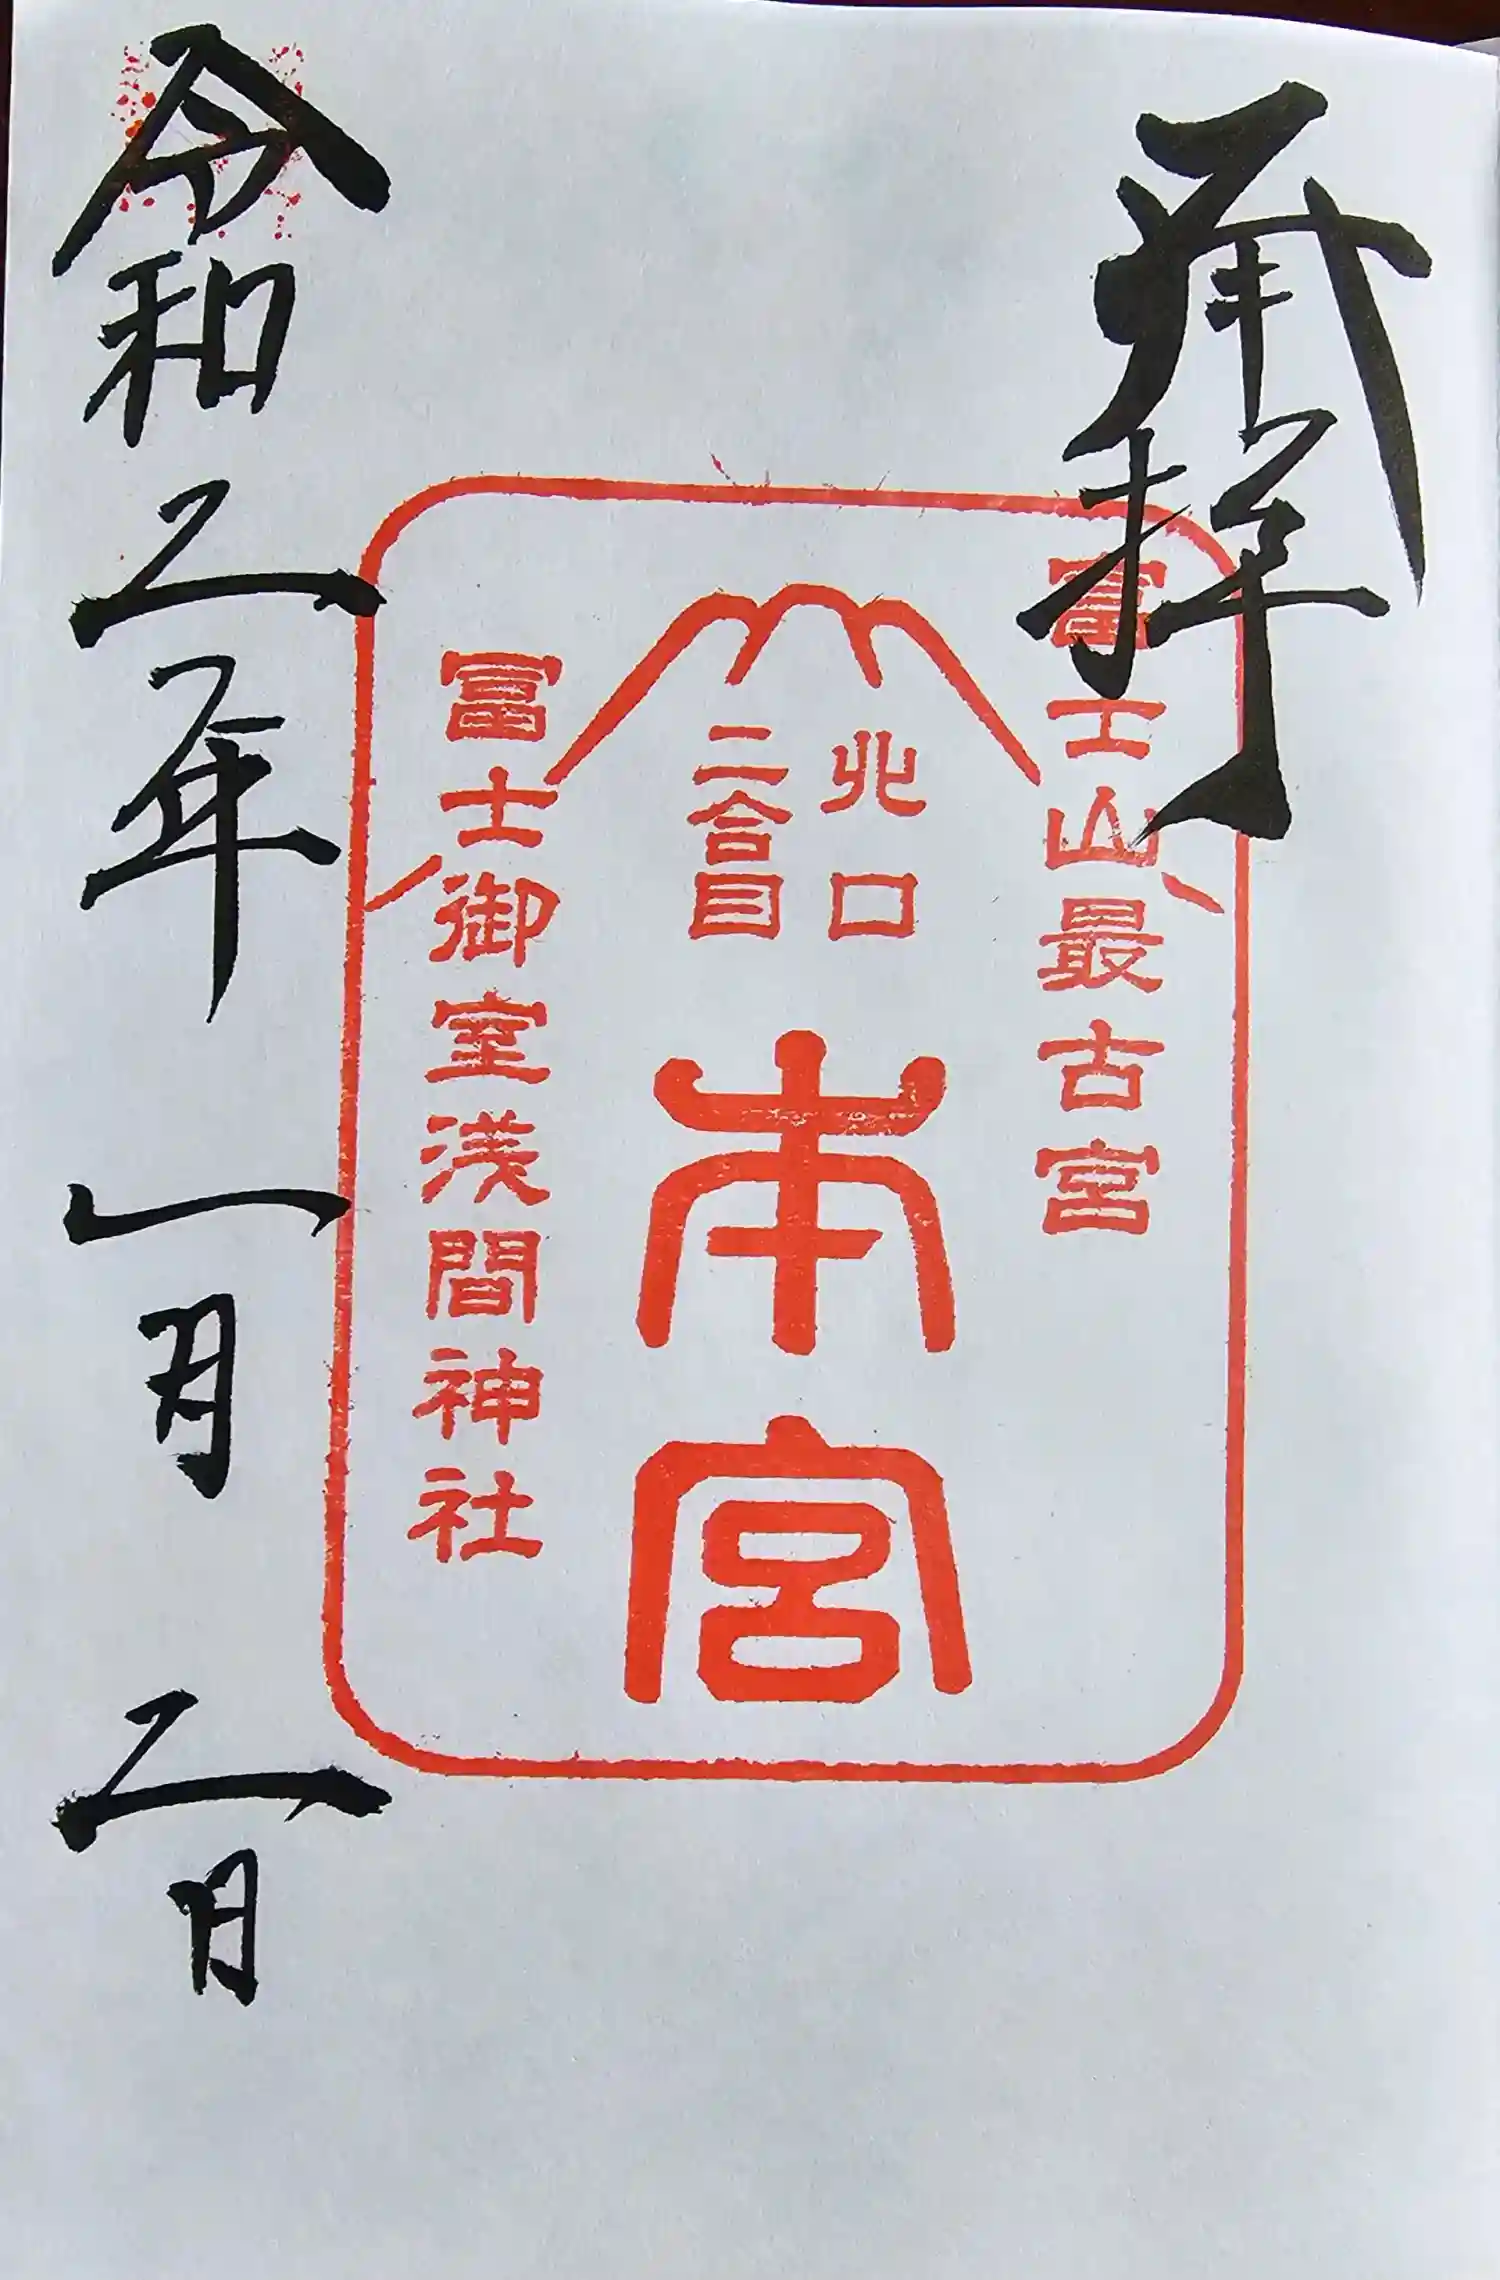 奉拝
富士山最古宮
北口
二合目
本宮
冨士御室浅間神社
令和二年一月二日